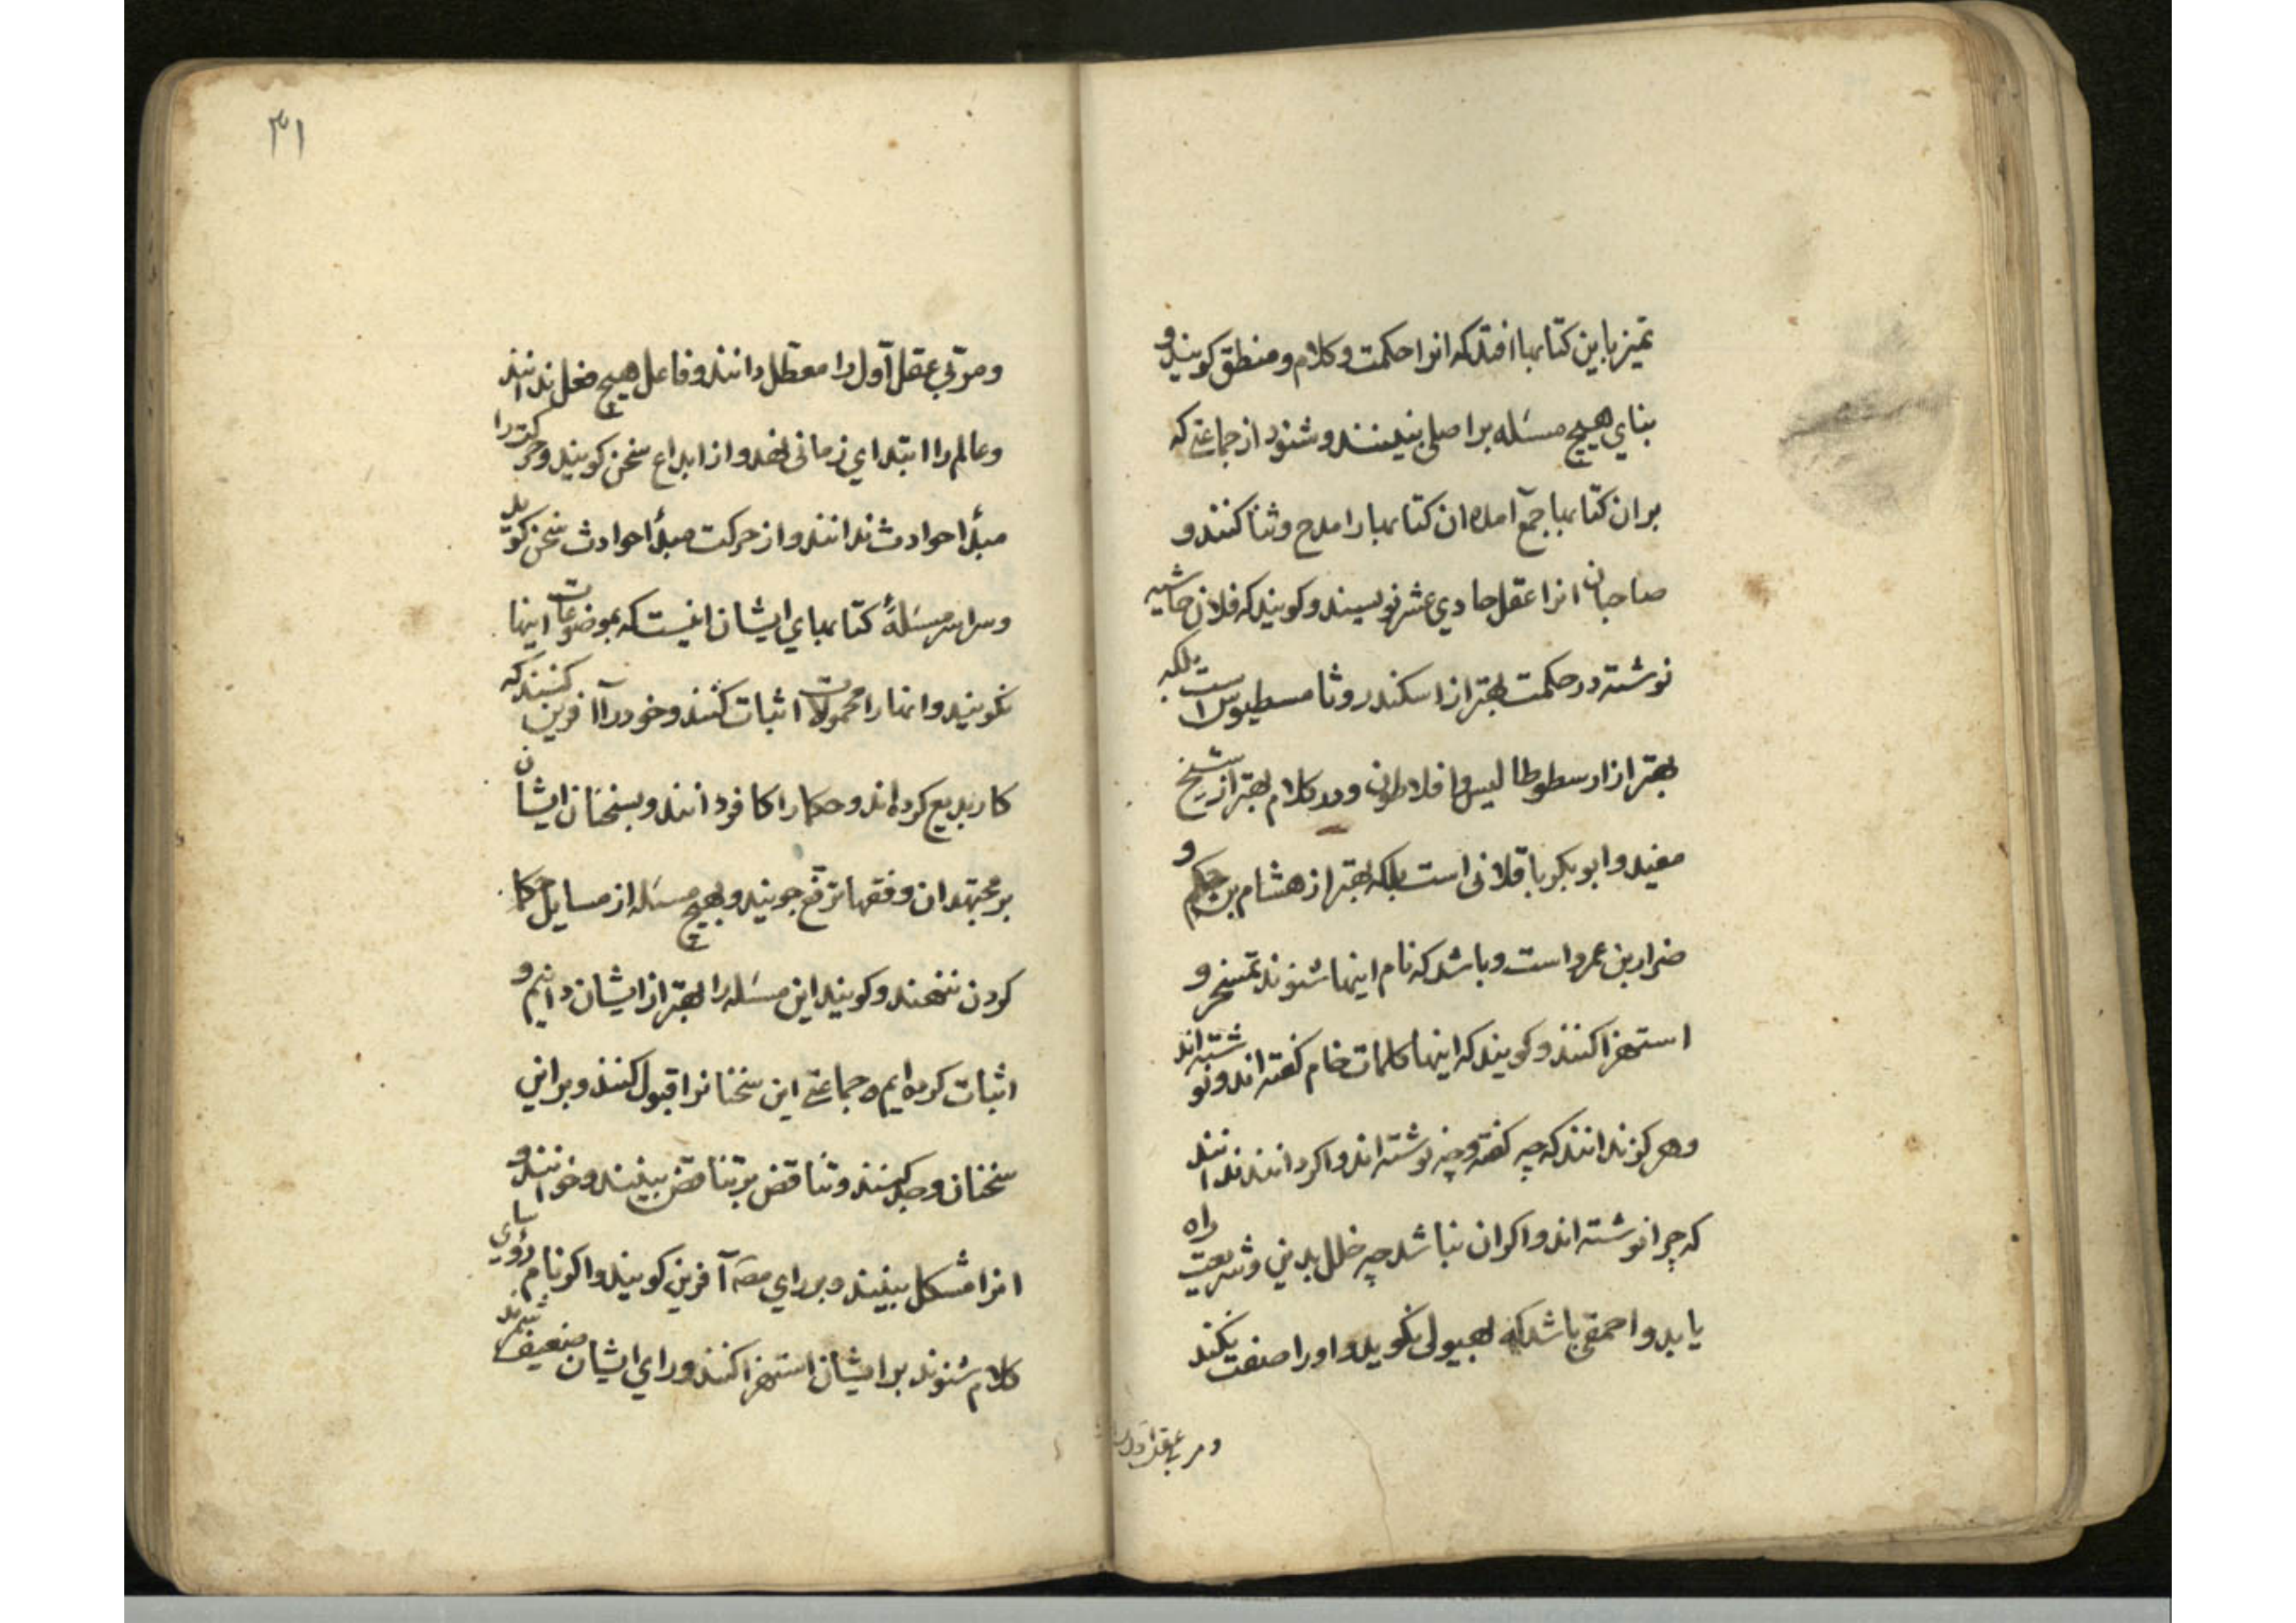 تمیز باین کتابها افتد که انرا حکمت و کلام و منطق کویند و
بنای هیچ مسئله بر اصلی نبینند و شنود از جماعتی که
بران کتابها جمع آمده ان کتابها را مدح و ثنا کنند و
صاحبان انرا عقل حادی عشر نویسند و کویند که فلان حاشیه
نوشته در حکمت بهتر از اسکندر و ثامسطیوس است بلکه
بهتر از ارسطوطالیس و افلاطون و در کلام بهتر از شیخ
مفید و ابو بکر باقلانی است بلکه بهتر از هشام بن حکم و
ضرار بن عمرو است و باشد که نام اینها شنوند تمسخر و
استهزا کنند و کویند که اینها کلمات خام کفته اند و نوشته اند
و هرکز ندانند که چه کفته و چه نوشته اند و اکر دانند ندانند
که چرا نوشته اند و اکر ان نباشد چه خلل بدین و شریعت راه
یابد و احمقی باشد که بهیولی نکوید و او را صنعت نکند
و مربی عقل اول را
۳۱
و مربی عقل اول را معطل دانند و فاعل هیچ فعل ندانند
و عالم را ابتدای زمانی نهد و از ابداع سخن کویند و حرکت را
مبدأ حوادث ندانند و از حرکت مبدأ حوادث سخن کوید
و سراسر مسئلهٔ کتابهای ایشان اینست که بموضوعات اینها
نکویند و انها را محمولات اثبات کنند و خود را آفرین کنند که
کار بدیع کرده اند و حکما را کافر دانند و بسخنان ایشان
بر مجتهدان و فقها ترفع جویند و بهیچ مسئله از مسایل حکما
کردن ننهند و کویند این مسئله را بهتر از ایشان دانیم و
اثبات کرده ایم و جماعتی این سخنانرا قبول کنند و بر این
سخنان و جد کنند و تناقض بر تناقض بینند و خوانند و
انرا مشکل بینند و بر رای آفرین کویند و اکر نام رؤسای
کلام شنوند بر ایشان استهزا کنند و رای ایشان ضعیف شمرند